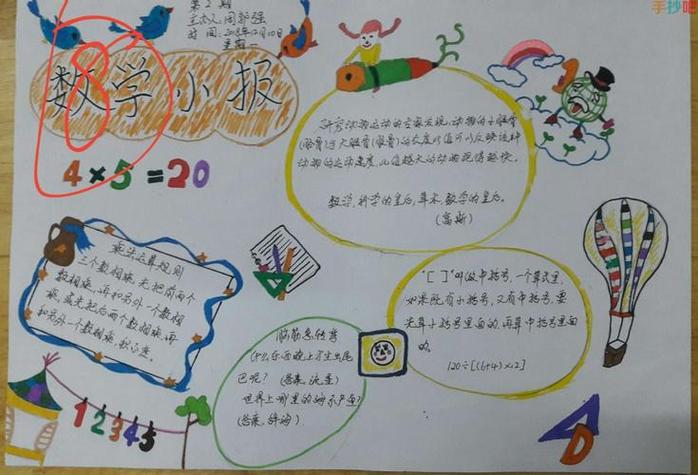 第2期
主办人周郭强
时间:2018年12月10日
星期一
手抄吧
数学小报
8
4×5=20
研究动物运动的专家发现,动物的小腿骨
(胫骨)与大腿骨(股骨)的长度比值可以反映这种
动物的运动速度,比值越大的动物跑得越快。
数学,科学的皇后;算术,数学的皇后。
(高斯)
乘法运算规则
三个数相乘,先把前两个
数相乘,再和另外一个数相
乘,或先把后两个数相乘,再
和另外一个数相乘,积不变。
"[ ]"叫做中括号,一个算式里,
如果既有小括号,又有中括号,要
先算小括号里面的,再算中括号里面
的。
120÷[(6+4)×12]
脑筋急转弯
什么东西晚上才生出尾
巴呢?(答案:流星)
世界上哪里的海不产鱼?
(答案:辞海)
1 2 3 4 5